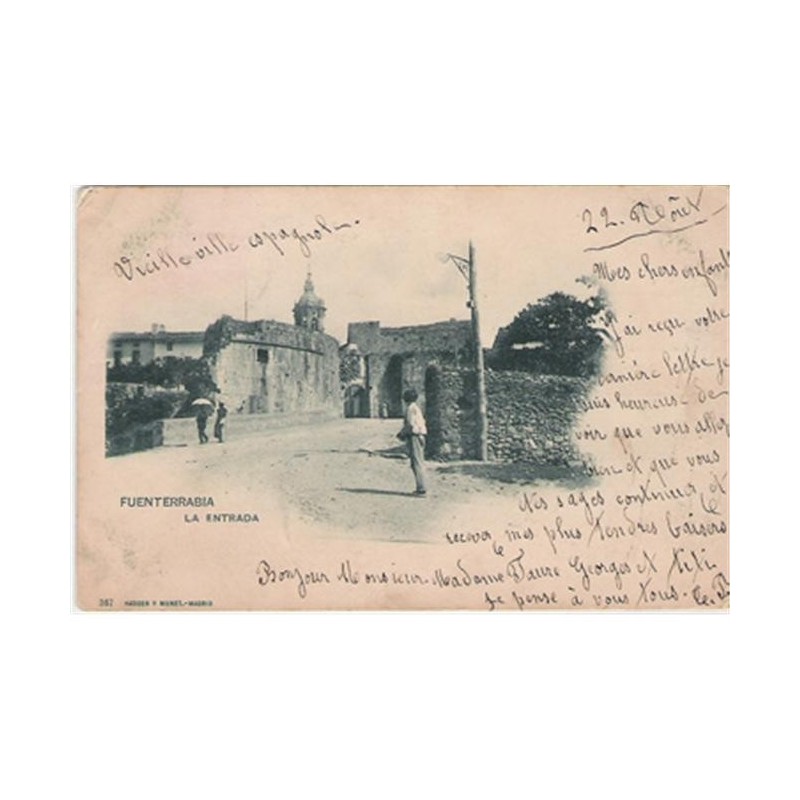 22. Août
Vieille ville espagnole
Mes chers enfants
J'ai reçu votre
dernière lettre je
suis heureuse de
voir que vous allez
bien et que vous
êtes sages continuez et
recevez mes plus tendres baisers
Bonjour Monsieur Madame Faure Georges et titi
je pense à vous tous.
FUENTERRABIA
LA ENTRADA
367 HAUSER Y MENET.-MADRID